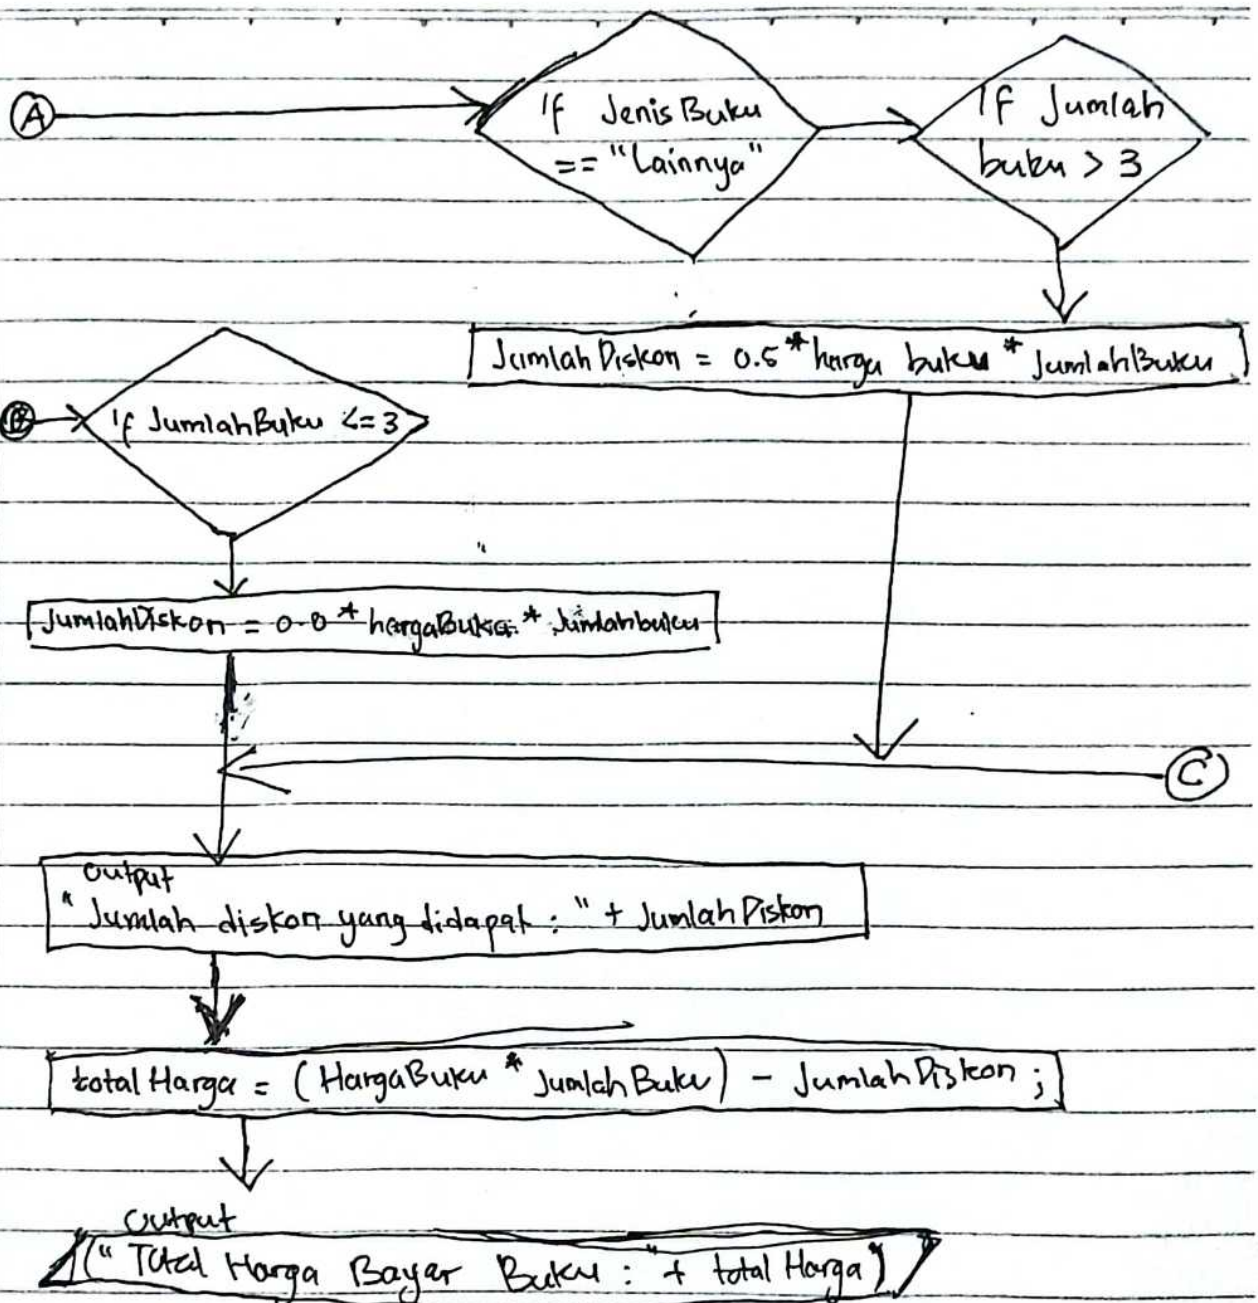 A
If Jenis Buku
== "Lainnya"
If Jumlah
buku > 3
Jumlah Diskon = 0.5 * harga buku * JumlahBuku
B
If JumlahBuku <= 3
JumlahDiskon = 0.0 * hargaBuku * Jumlahbuku
C
Output
"Jumlah diskon yang didapat : " + Jumlah Diskon
total Harga = (HargaBuku * Jumlah Buku) - Jumlah Diskon ;
Output
(" Total Harga Bayar Buku : " + total Harga)